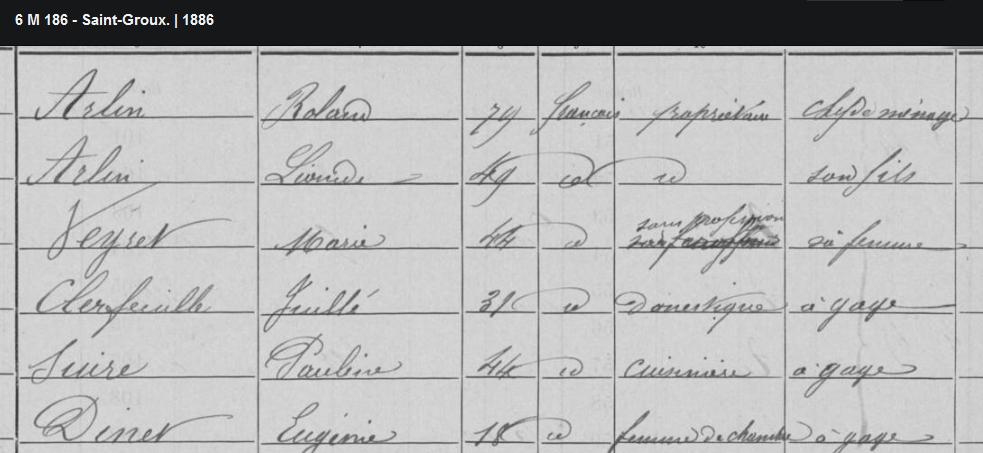 6 M 186 - Saint-Groux. | 1886
Arlin Roland 79 français propriétaire chef de ménage
Arlin 49 id id son fils
Veyret Marie 44 id sans profession sa femme
Clerfeuille Juillé 31 id Domestique à gage
Suire Pauline 44 id cuisinière à gage
Dinet Eugénie 18 id femme de chambre à gage